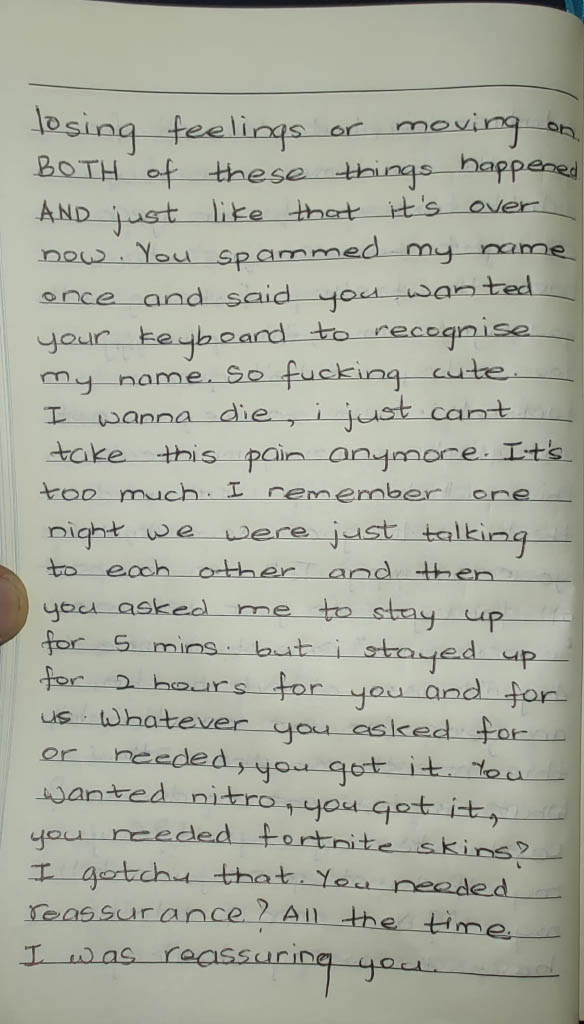 losing feelings or moving on.
BOTH of these things happened
AND just like that it's over
now. You spammed my name
once and said you wanted
your keyboard to recognise
my name. So fucking cute.
I wanna die, i just can't
take this pain anymore. It's
too much. I remember one
night we were just talking
to each other and then
you asked me to stay up
for 5 mins. but i stayed up
for 2 hours for you and for
us. Whatever you asked for
or needed, you got it. You
wanted nitro, you got it,
you needed fortnite skins?
I gotchu that. You needed
reassurance? All the time.
I was reassuring you.